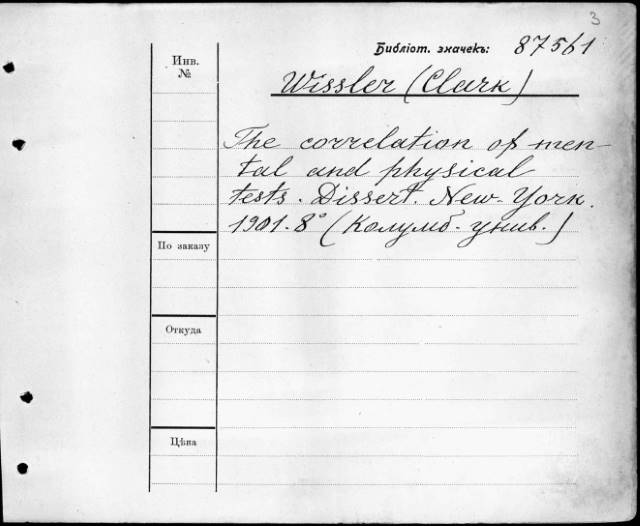 3
Библіот. значекъ: 87561
Инв.
№
Wissler (Clark)
The correlation of men-
tal and physical
tests. Dissert. New-York.
1901. 8° (Колумб. унив.)
По заказу
Откуда
Цѣна